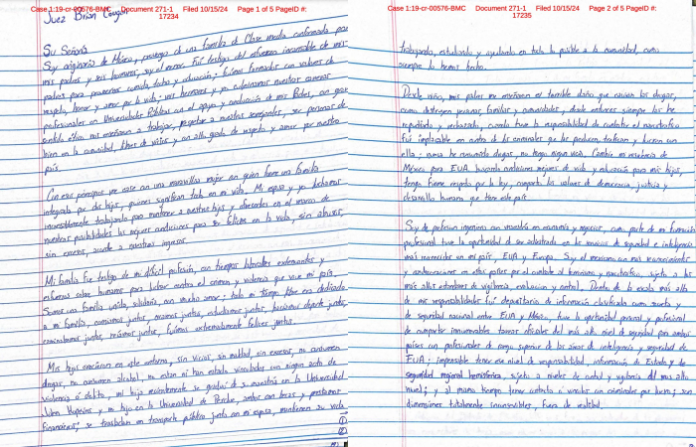 Case 1:19-cr-00576-BMC Document 271-1 Filed 10/15/24 Page 1 of 5 PageID #:
17234
Juez Brian Cogan
Su Señoría
Soy originario de México, provengo de una familia de clase media conformada por
mis padres y mis hermanos, soy el menor. Fui testigo del esfuerzo incansable de mis
padres para proveernos comida, techo y educación; fuimos formados con valores de
respeto, honor y amor por la vida; mis hermanos y yo culminamos nuestras carreras
profesionales en Universidades Públicas con el apoyo y conducción de mis Padres, con gran
sentido ético nos enseñaron a trabajar, respetar a nuestros semejantes, ser personas de
bien en la comunidad, libres de vicios y un alto grado de respeto y amor por nuestro
país.
Con esos principios me casé con una maravillosa mujer con quien formé una familia
integrada por dos hijos, quienes significan todo en mi vida. Mi esposa y yo luchamos
incansablemente trabajando para mantener a nuestros hijos y ofrecerles en el marco de
nuestras posibilidades las mejores condiciones para su felicidad en la vida, sin abusos,
sin excesos, acorde a nuestros ingresos.
Mi familia fue testigo de mi difícil profesión, con tiempos laborales extenuantes y
esfuerzos sobre humanos para luchar contra el crimen y violencia que vive mi país.
Somos una familia unida, solidaria, con mucho amor; todo mi tiempo libre era dedicado
a mi familia, comíamos juntos, reíamos juntos, estudiábamos juntos, hacíamos deporte juntos,
juntos, rezábamos juntos, fuimos extremadamente felices juntos.
Mis hijos crecieron en este entorno, sin vicios, sin maldad, sin excesos, no consumen
drogas, no consumen alcohol, no están ni han estado vinculados con ningún acto de
violencia o delito, mi hija recientemente se graduó de su maestría en la Universidad
Johns Hopkins y mi hijo en la Universidad de Purdue, ambos con becas y préstamos
financieros; se trasladan en transporte público junto con mi esposa, mantienen su vida
Case 1:19-cr-00576-BMC Document 271-1 Filed 10/15/24 Page 2 of 5 PageID #:
17235
trabajando, estudiando y ayudando en todo lo posible a la comunidad, como
siempre lo hemos hecho.
Desde niño, mis padres me enseñaron el terrible daño que causan las drogas,
como destruyen personas, familias y comunidades, desde entonces siempre las he
repudiado y rechazado, cuando tuve la responsabilidad de combatir el narcotráfico
fui implacable en contra de los criminales que las producen, trafican y lucran con
ello; nunca he consumido drogas, no tengo ningún vicio. Cambié mi residencia de
México para EUA buscando condiciones mejores de vida y educación para mis hijos,
tengo firme respeto por la ley, comparto los valores de democracia, justicia y
desarrollo humano que tiene este país.
Soy de profesión ingeniero con maestría en economía y negocios, como parte de mi formación
profesional tuve la oportunidad de ser adiestrado en los servicios de seguridad e inteligencia
más reconocidos en mi país, EUA y Europa. Soy el mexicano con más reconocimientos
y condecoraciones en estos países por el combate al terrorismo y narcotráfico, sujeto a los
más altos estándares de vigilancia, evaluación y control. Dentro de la escala más alta
de mis responsabilidades fui depositario de información clasificada como secreta y
de seguridad nacional entre EUA y México, tuve la oportunidad personal y profesional
de compartir innumerables tareas oficiales del más alto nivel de seguridad por ambos
países con profesionales de rango superior de las áreas de inteligencia y seguridad de
EUA; imposible tener ese nivel de responsabilidad, información de Estado y de
seguridad regional hemisférica, sujeto a niveles de control y vigilancia del más alto
nivel; y al mismo tiempo tener contacto o vínculo con criminales por lucro; son
dimensiones totalmente inaccesibles, fuera de realidad.